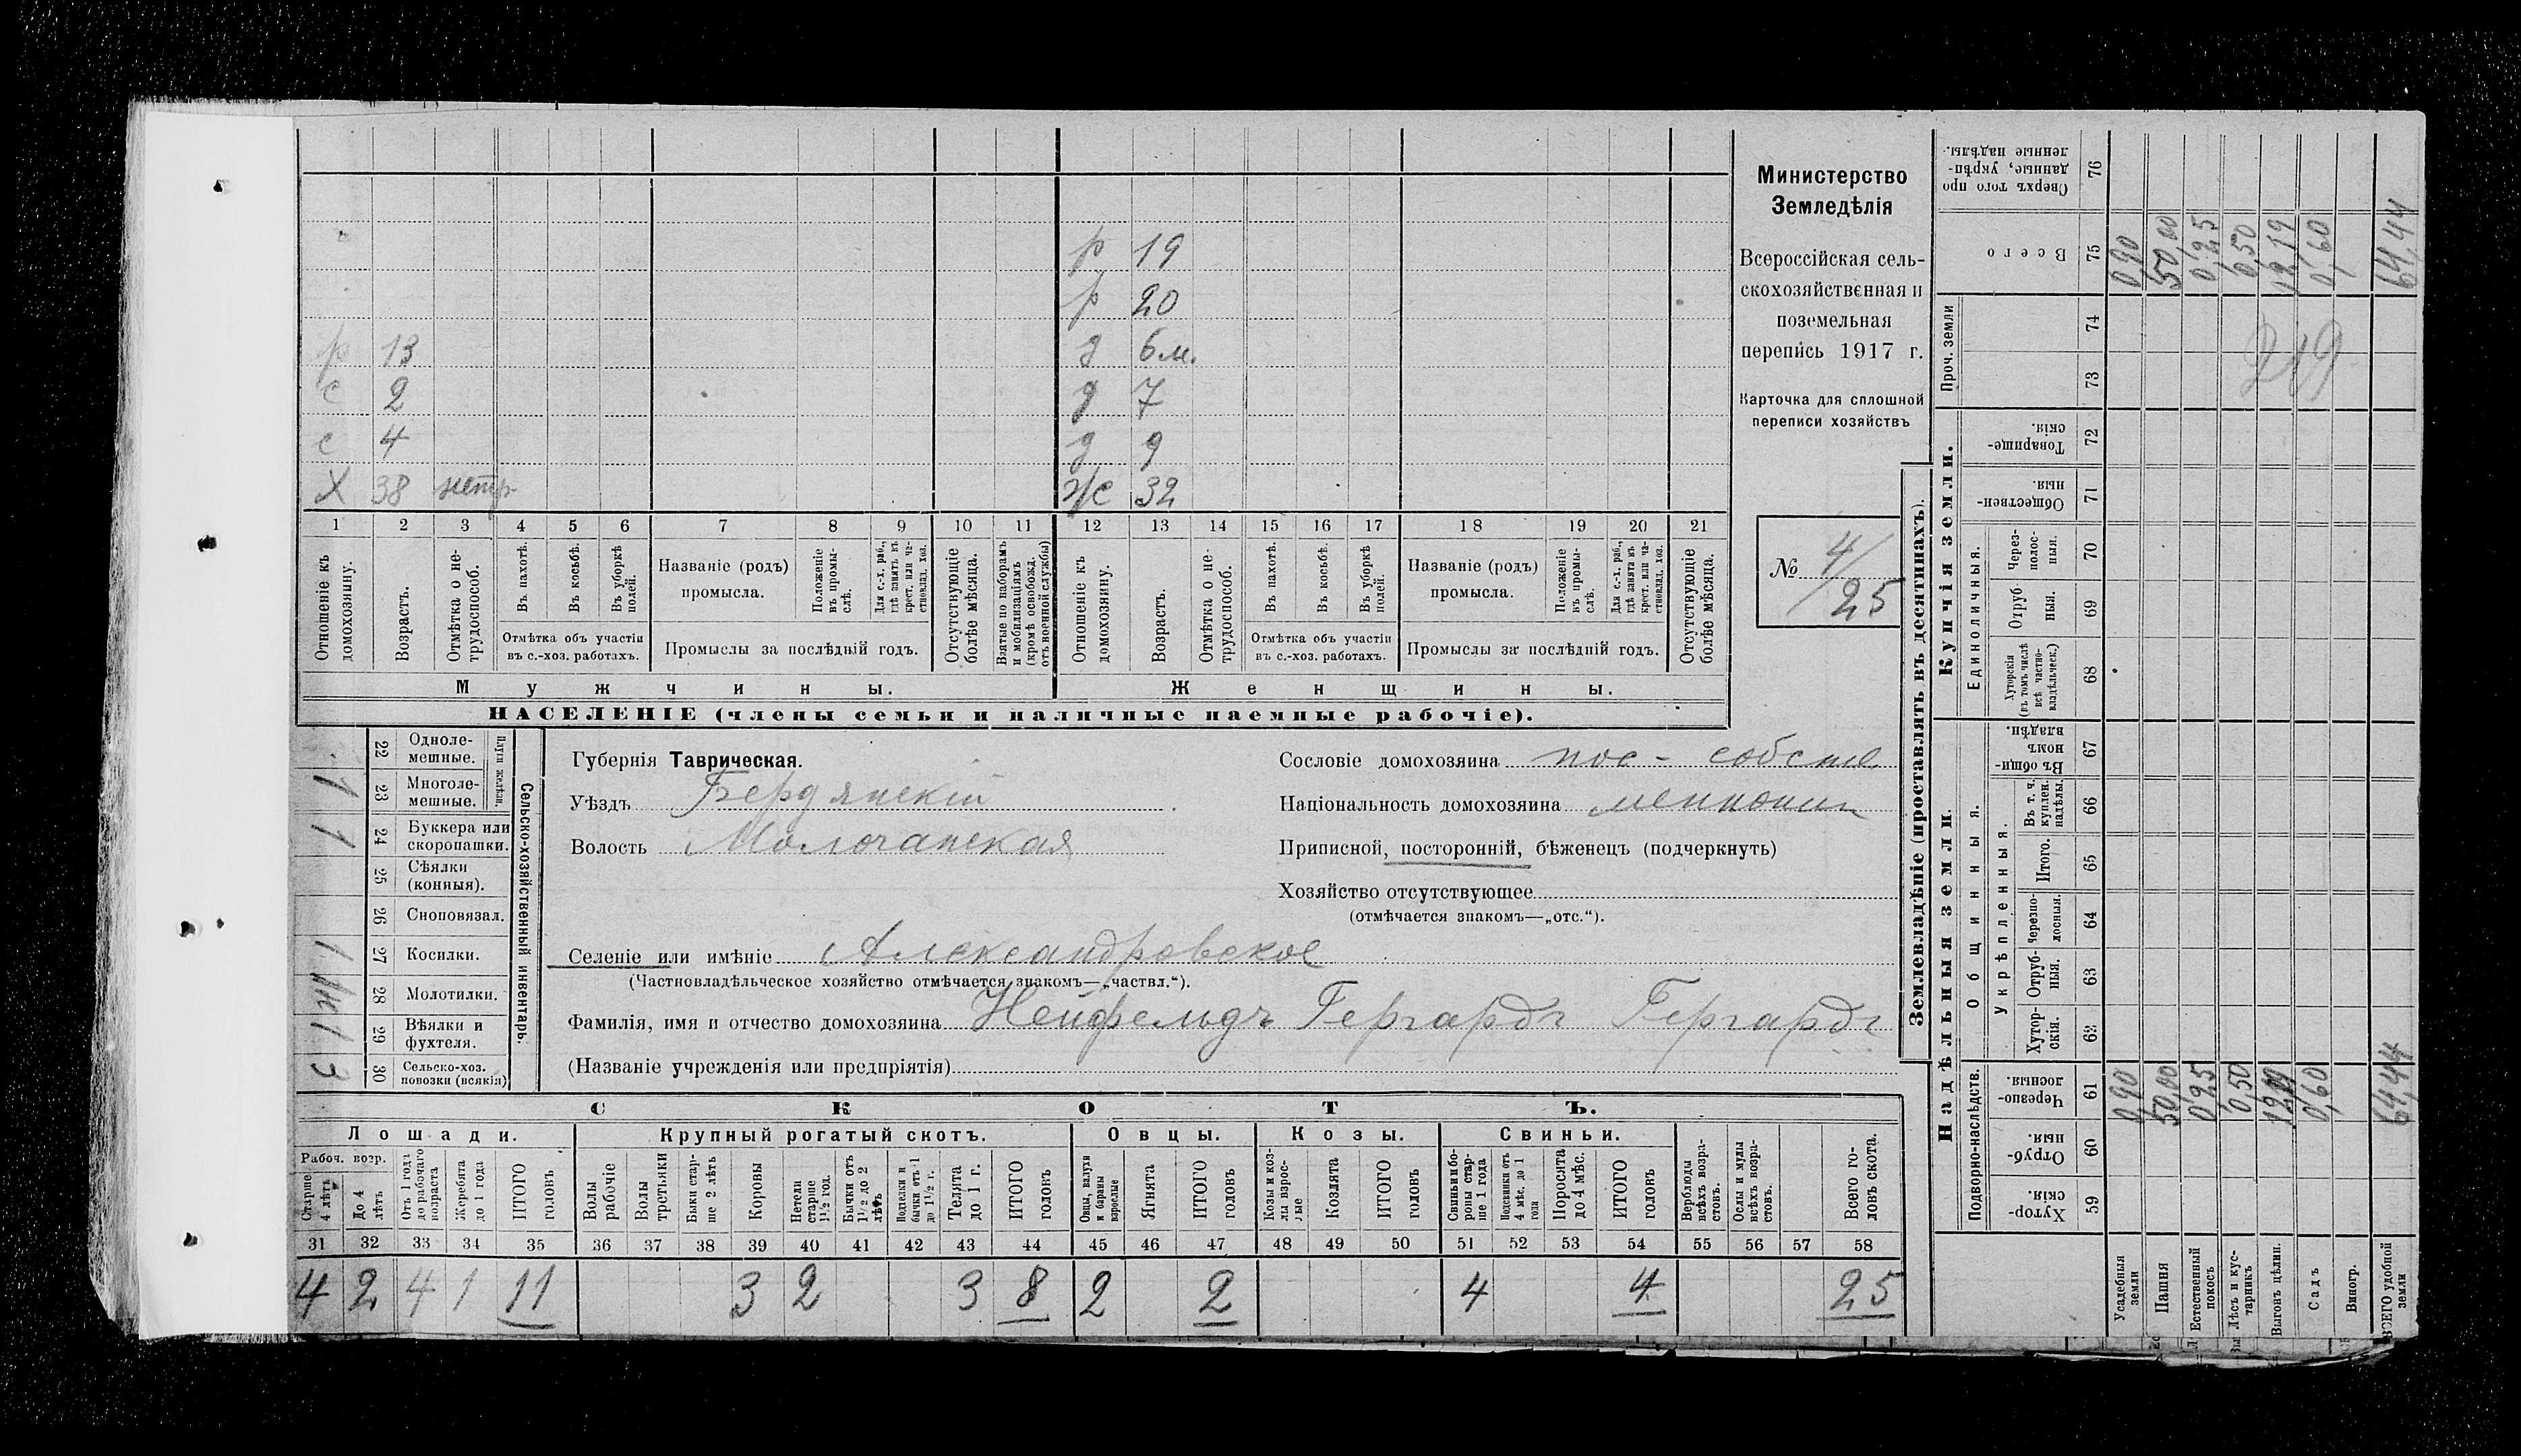 р 19
р 20
р 13 д 6 м.
с 2 д 7
с 4 д 9
Х 38 нетр ж 32
1 2 3 4 5 6 7 8 9 10 11 12 13 14 15 16 17 18 19 20 21
Отношеніе къ домохозяину.
Возрастъ.
Отмѣтка о не-трудоспособ.
Въ пахотѣ.
Въ косьбѣ.
Въ уборкѣ полей.
Отмѣтка объ участіи
въ с.-хоз. работахъ.
Названіе (родъ)
промысла.
Положеніе въ промы-слѣ.
Для с.-х. раб., гдѣ занятъ въ крест. или ча-стновлад. хоз.
Промыслы за послѣдній годъ.
Отсутствующіе болѣе мѣсяца.
Взятые по наборамъ и мобилизаціямъ (кромѣ освобожд. отъ военной службы)
Отношеніе къ домохозяину.
Возрастъ.
Отмѣтка о не-трудоспособ.
Въ пахотѣ.
Въ косьбѣ.
Въ уборкѣ полей.
Отмѣтка объ участіи
въ с.-хоз. работахъ.
Названіе (родъ)
промысла.
Положеніе въ промы-слѣ.
Для с.-х. раб., гдѣ занята въ крест. или ча-стновлад. хоз.
Промыслы за послѣдній годъ.
Отсутствующіе болѣе мѣсяца.
Мужчины. Женщины.
НАСЕЛЕНІЕ (члены семьи и наличные наемные рабочіе).
Министерство
Земледѣлія
Всероссійская сель-
скохозяйственная и
поземельная
перепись 1917 г.
Карточка для сплошной
переписи хозяйствъ
№ 4/25
Сельско-хозяйственный инвентарь.
Плуги желѣзн.
22 Одноле-мешные.
1 23 Многоле-мешные.
1 24 Буккера или скоропашки.
25 Сѣялки (конныя).
26 Сноповязал.
1 27 Косилки.
28 Молотилки.
1 29 Вѣялки и фухтеля.
3 30 Сельско-хоз. повозки (всякія)
Губернія Таврическая.
Уѣздъ Бердянскій
Волость Молочанская
Сословіе домохозяина пос - собств
Національность домохозяина меннонит
Приписной, посторонній, бѣженецъ (подчеркнуть)
Хозяйство отсутствующее
(отмѣчается знакомъ—„отс.“).
Селеніе или имѣніе Александровское
(Частновладѣльческое хозяйство отмѣчается знакомъ—„частвл.“).
Фамилія, имя и отчество домохозяина Нейфельдъ Гергардъ Гергард
(Названіе учрежденія или предпріятія)
СКОТЪ.
Лошади. Крупный рогатый скотъ. Овцы. Козы. Свиньи.
Рабоч. возр.
Старше 4 лѣтъ
До 4 лѣтъ
Отъ 1 года до рабочаго возраста
Жеребята до 1 года
ИТОГО головъ
Волы рабочіе
Волы гостьянки
Быки стар-ше 2 лѣтъ
Коровы
Нетели старше 1½ год.
Бычки отъ 1½ до 2 лѣтъ
Подтелки и бычки отъ 1 до 1½ г.
Телята до 1 г.
ИТОГО головъ
Овцы, валухи и бараны взрослые
Ягнята
ИТОГО головъ
Козы и коз-лы взрос-лые
Козлята
ИТОГО головъ
Свиньи и бо-ровы стар-ше 1 года
Подсвинки отъ 4 мѣс. до 1 года
Поросята до 4 мѣс.
ИТОГО головъ
Верблюды всѣхъ возра-стовъ.
Ослы и мулы всѣхъ возра-стовъ.
Всего го-ловъ скота.
31 32 33 34 35 36 37 38 39 40 41 42 43 44 45 46 47 48 49 50 51 52 53 54 55 56 57 58
4 2 4 1 11 3 2 3 8 2 2 4 4 25
Землевладѣніе (проставлять въ десятинахъ).
Надѣльныя земли.
Купчія земли.
Проч. земли
Подворно-наслѣдств.
Общинныя.
Укрѣпленныя.
Единоличныя.
Хутор-скія. 59
Отруб-ныя. 60
Черезпо-лосныя. 61
Хутор-скія. 62
Отруб-ныя. 63
Черезпо-лосныя. 64
Итого. 65
Въ т. ч. куплен. надѣлы. 66
Въ общин-номъ владѣн. 67
Хуторскія (въ томъ числѣ всѣ частно-владѣльческ.) 68
Отруб-ныя. 69
Через-полос-ныя. 70
Обществен-ныя. 71
Товарище-скія. 72
73
74
Всего 75
Сверхъ того про-данные, укрѣп-ленные надѣлы. 76
Усадебныя земли 0,90 0,90
Пашня 50,00 50,00
Естественный покосъ 0,25 0,25
Лѣсъ и кус-тарникъ 0,50 0,50
Выгонъ цѣлин. 12,19 12,19
Садъ 0,60 0,60
Виногр.
ВСЕГО удобной земли 64,44 64,44
219